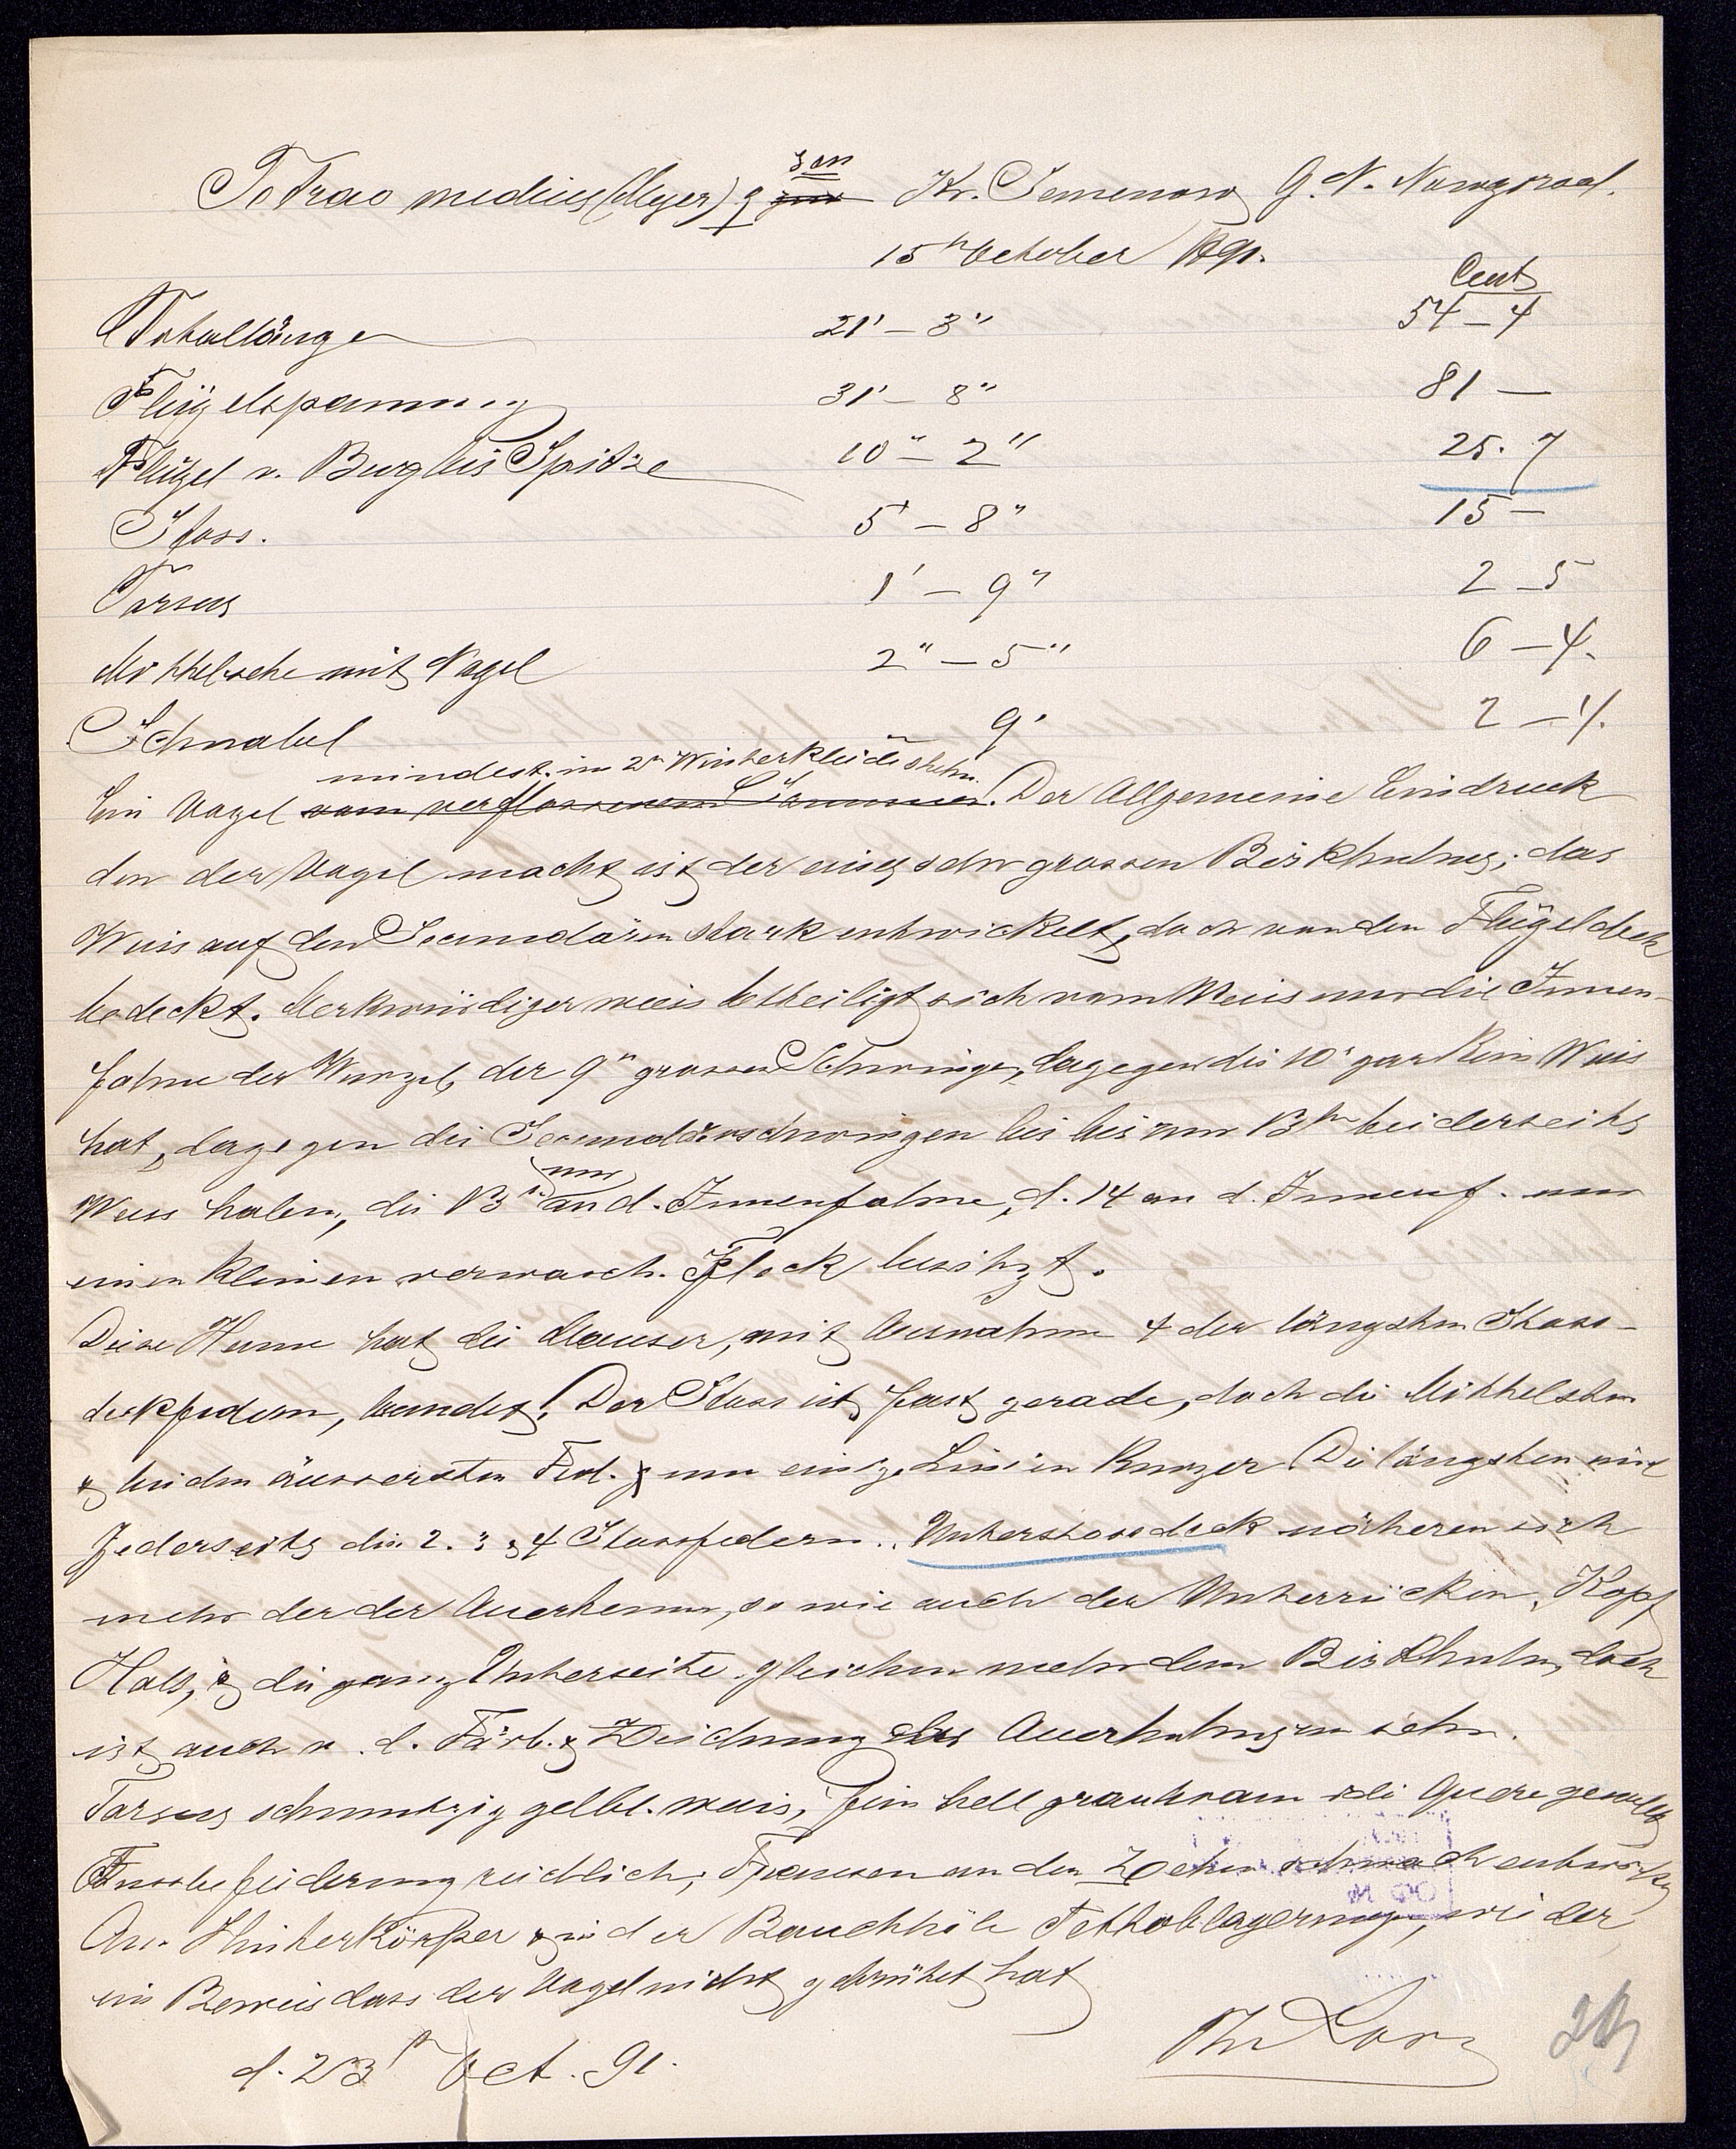 sen
Tetrao medius (Meyer) ♀ Kr. Semenow G. N. Nowgorod.
15n October 1891.
Cent
Totallänge 21' – 3" 54 – 4
Flügelspannung 31' – 8" 81 –
Flügel v. Bug bis Spitze 10" – 2" 25. 7
Stoss. 5' – 8" 15 –
Tarsus 1' – 9" 2 – 5
Mittelzehe mit Nagel 2" – 5" 6 – 4.
Schnabel 9" 2 – 1/.
mindest. im 2n Winterkleide stehn.
Ein Vogel vom verflossenen Sommer. Der Allgemeine Eindruck
den der Vogel macht ist der eines sehr grossen Birkhuhns; das
Weis auf den Secundären stark entwickelt, doch von den Flügeldeck
bedeckt. Merkwürdiger weis betheiligt sich vom Weis nur die Innen-
fahne der Wurzel, der 9n grossen Schwinge, dagegen die 10' gar kein Weis
hat, dagegen die Secundärschwingen bis bis zur 13n beiderseits
nur
Weis haben, die 13n an d. Innenfahne, d. 14 an d. Innenf. nur
einen kleinen verwasch. Fleck besitzt.
Diese Henne hat die Mauser, mit Ausnahme 4 der längsten Stoss-
deckfedern, beendet! Der Stoss ist fast gerade, doch die Mittelsten
& beiden äussersten Fed. um einige Linien kurzer. Die längsten sind
Jederseits die 2. 3 & 4 Stossfedern.. Unterstossdeck näheren sich
mehr der der Auerhenne, so wie auch der Unterrücken, Kopf
Hals, & die ganz Unterseite gleichen mehr dem Birkhuhn, doch
ist auch v. d. Färb. & Zeichnung des Auerhuhns zu sehn.
Tarsus schmutzig gelbl. weis, fein hell graubraun die Quere gewellt
Fussbefiederung reichlich; Fransen an den Zehen schwach entwickelt
Am Hinterkörper & in der Bauchhöle Fettablagerung, wieder
ein Beweis dass der Vogel nicht gebrütet hat
d. 23n Oct. 91. Th Lorenz